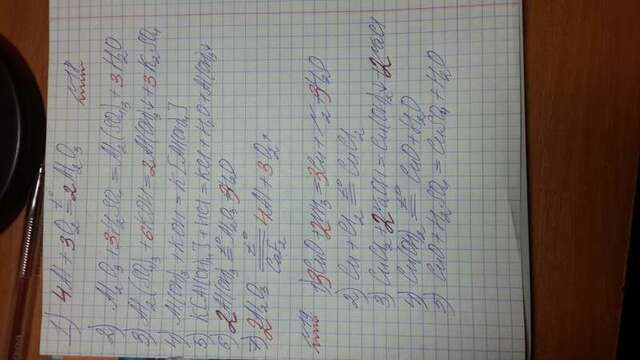 1) 4Al + 3O₂ =t°= 2Al₂O₃
2) Al₂O₃ + 3H₂SO₄ = Al₂(SO₄)₃ + 3H₂O
3) Al₂(SO₄)₃ + 6KOH = 2Al(OH)₃↓ + 3K₂SO₄
4) Al(OH)₃ + KOH = K[Al(OH)₄]
5) K[Al(OH)₄] + HCl = KCl + H₂O + Al(OH)₃↓
6) 2Al(OH)₃ =t°= Al₂O₃ 3H₂O
7) 2Al₂O₃ =t°= 4Al + 3O₂↑
1) 3CuO 2NH₃ = 3Cu + N₂ 3H₂O
2) Cu + Cl₂ =t°= CuCl₂
3) CuCl₂ 2NaOH = Cu(OH)₂↓ 2NaCl
4) Cu(OH)₂ =t°= CuO + H₂O
5) CuO + H₂SO₄ = CuSO₄ + H₂O